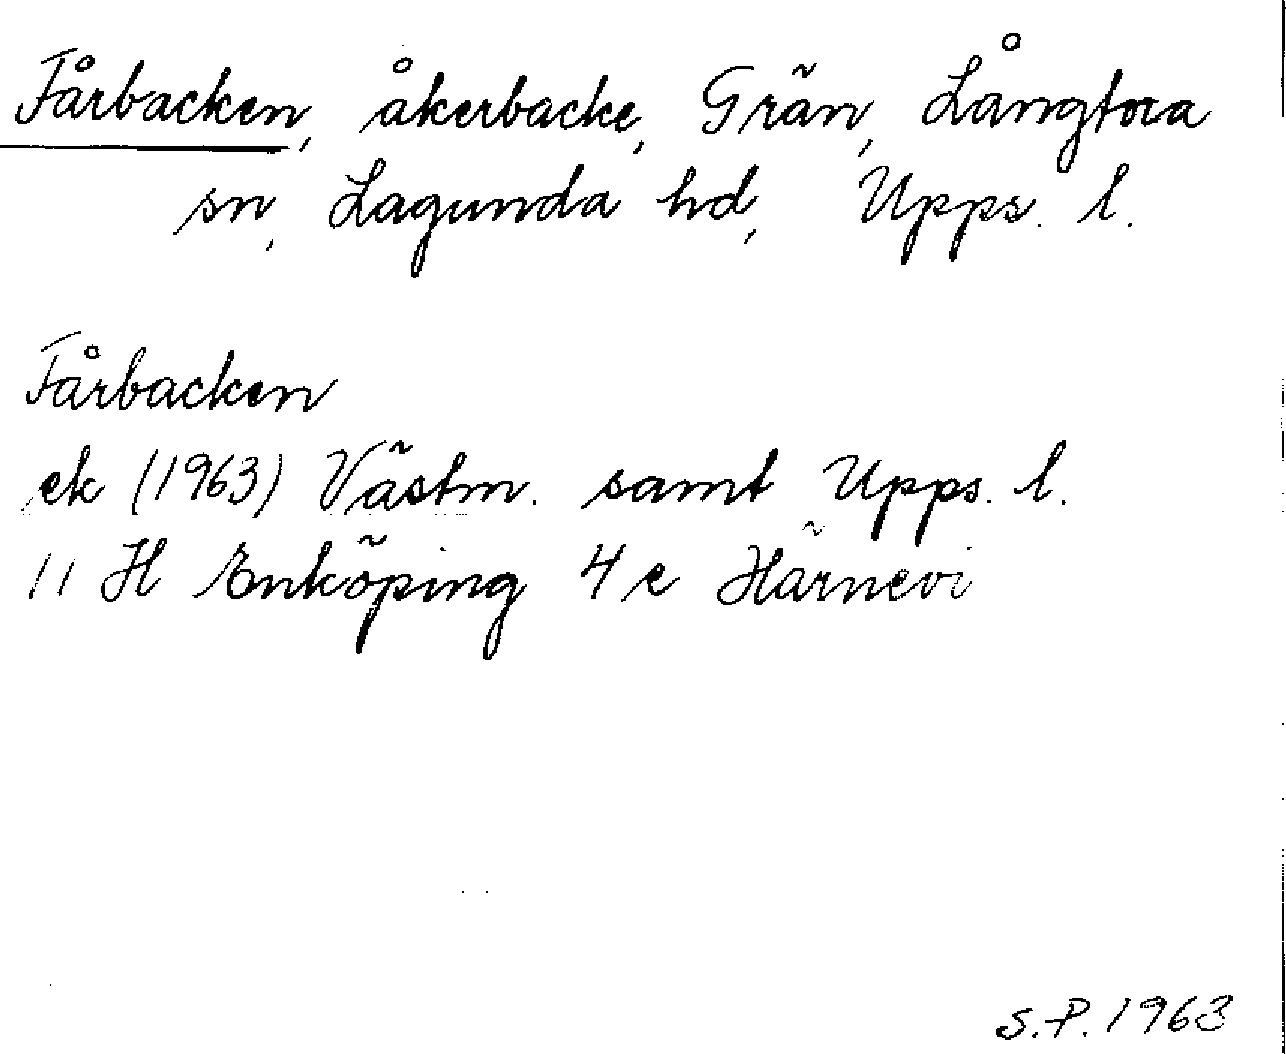 Fårbacken, åkerbacke, Grän, Långtora
sn, Lagunda hd, Upps. l.
Fårbacken
ek (1963) Västm. samt Upps. l.
11 H Enköping 4 e Härnevi
S.P. 1963